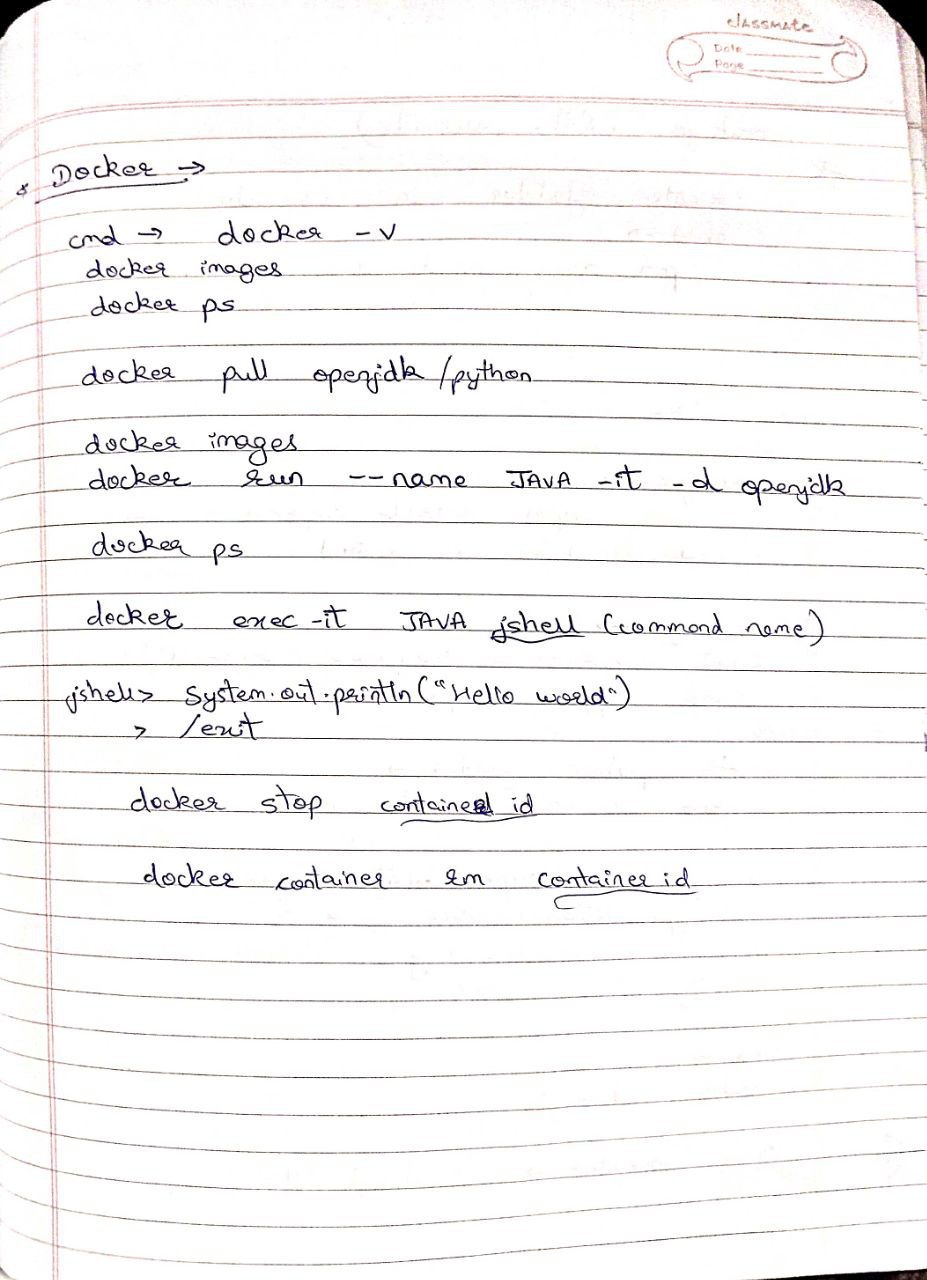 classmate
Date
Page
* Docker →
cmd → docker -v
docker images
docker ps
docker pull openjdk /python
docker images
docker run --name JAVA -it -d openjdk
docker ps
docker exec -it JAVA jshell (command name)
jshell> System.out.println("Hello world")
> /exit
docker stop container id
docker container rm container id